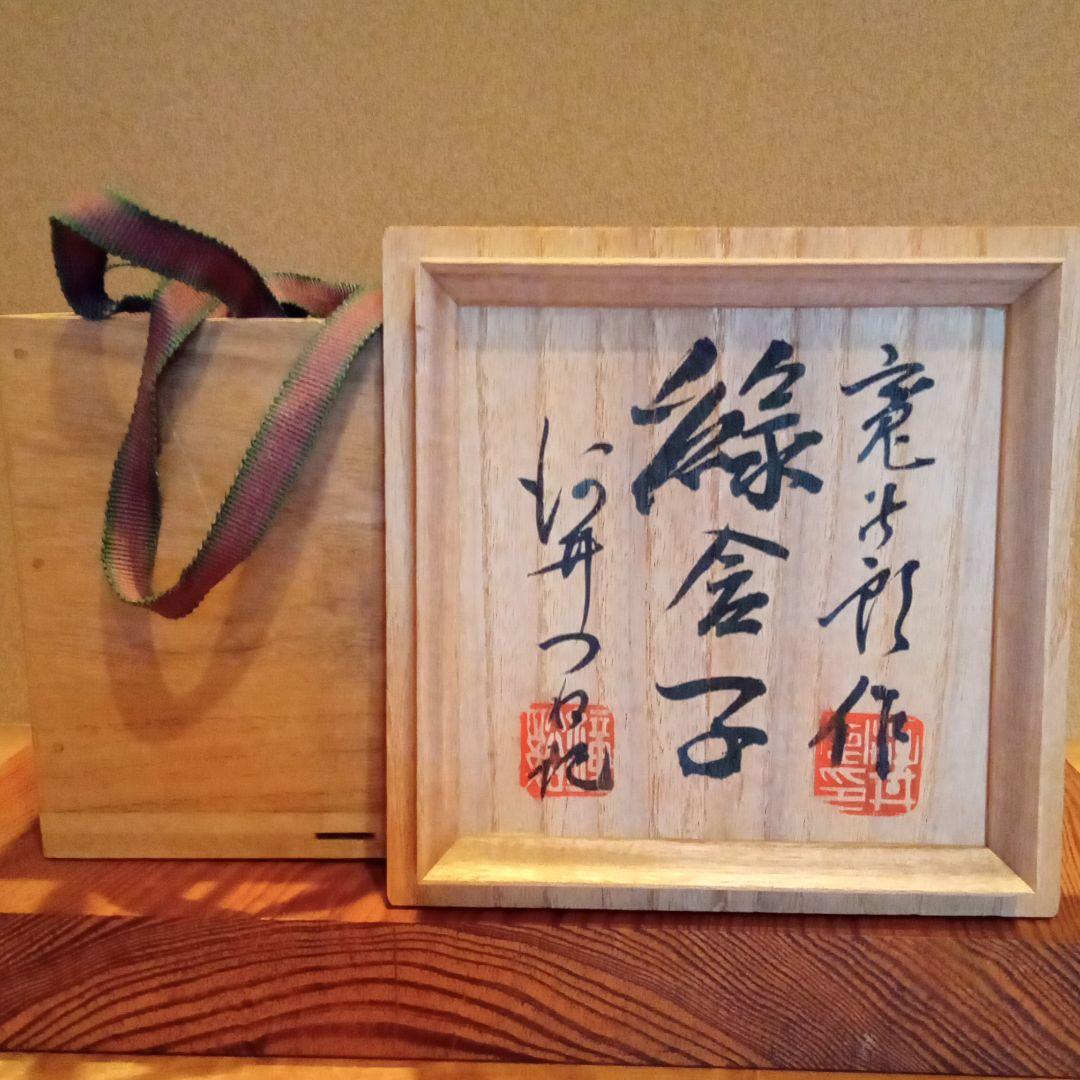 寛次郎作
綠盒子
河井つね記